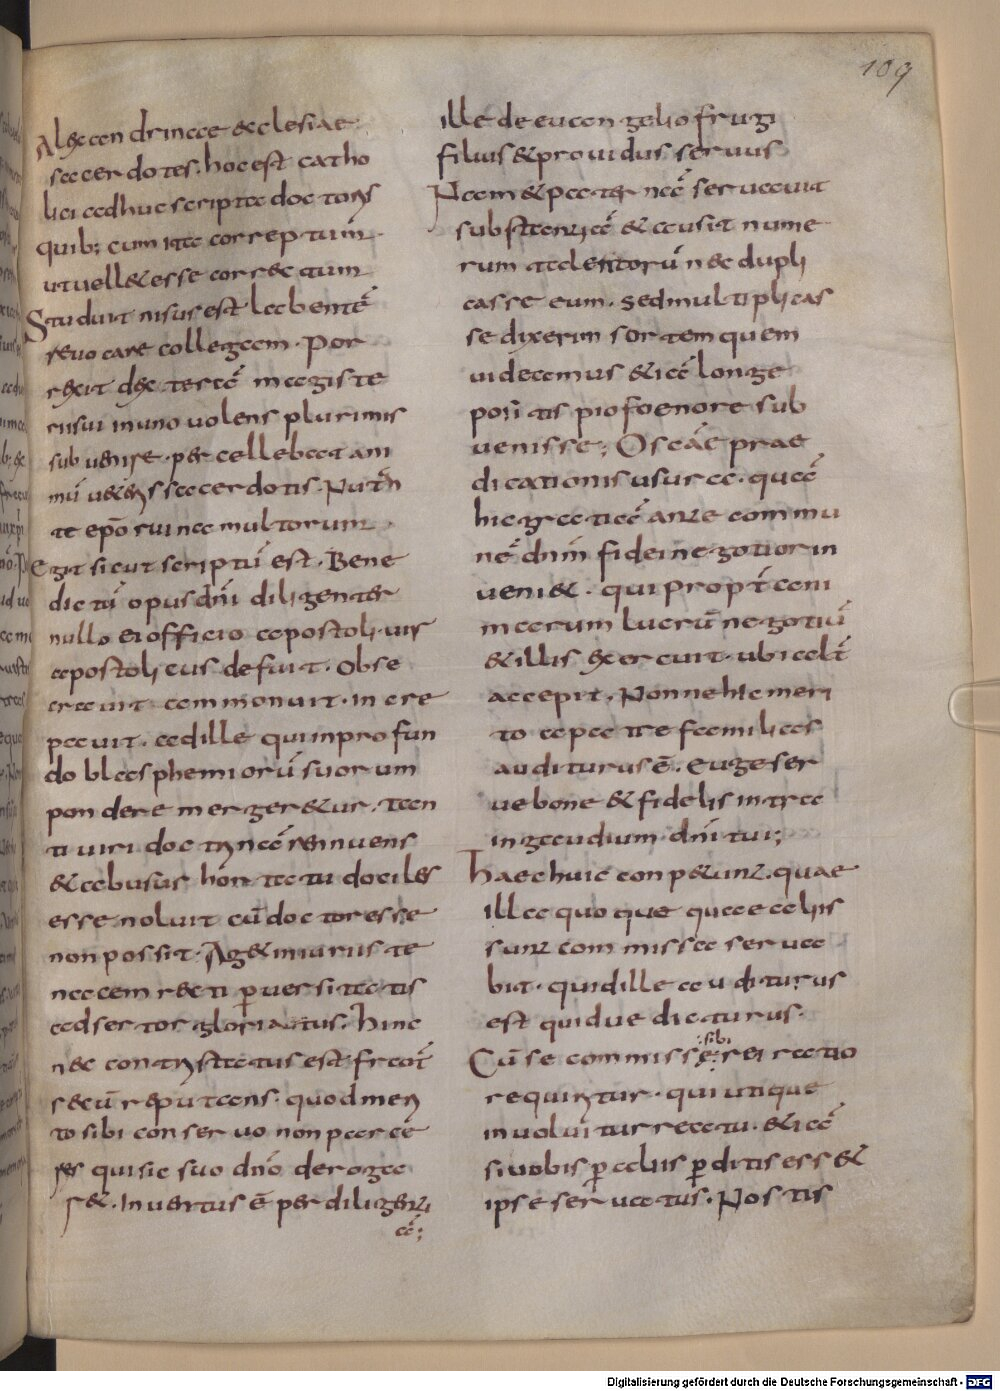 109
Alexandrinae ecclesiae
sacerdotes. hoc est catho
lici adhuc scripta doctoris
quib; cum ita correptum
ut vell& esse correctum
Studuit nisus est labentē
revocare collegam. Por
rexit dexterā magiste
rii sui in uno volens plurimis
subvenire. per cellebat ani
mū veteris sacerdotis. Putan
te epō ruina multorum
Egit sicut scriptū est. Bene
dictū opus dn̄i diligenter
nullo ei officio apostoli. vir
apostolicus defuit. Obse
cravit commonuit. incre
pavit. ad ille qui in profun
do blasphemiorū suorum
pondere mergeretur. tan
ti viri doctrinā renuens
& abusus hortatu dociles
esse noluit cū doctor esse
non possit. Ag& iniarius te
nacem recti perversitatis
adsertor gloriatus. hinc
nec contristatus est fratri
secū reputans. quod meri
to sibi conservo non parce
res qui sic suo dn̄o deroga
r&. Inventus ē per diligenti
ā;
ille de euangelio frugi
filius & providus servus
Nam & pater nā servavit
substantiā & ausit nume
rum talentorū nec dupli
casse eum. sed multiplicas
se dixerim sortem quem
videamus & iā longe
positis pio foenore sub
venisse; O sacae prae
dicationis usura. quā
hic graticā ante commu
nē dn̄m fidei negotior in
veni&. qui propt ani
marum lucrū negotiū
& illis exercuit. ubi alt
accepit. Nonne hic meri
to a patre familias
auditurus ē. euge ser
ve bone & fidelis intra
in gaudium dn̄i tui;
Haec huic conpetunt. quae
illa quoque quae ealiis
sunt commissa serva
bit. quid ille auditurus
est quidve dicturus.
Cū se commisse sibi rei ratio
requiritur. qui utique
involvitur reatu. & iā
si vobis p aliis p ditis ess&
ipse servatus. Nos tis
Digitalisierung gefördert durch die Deutsche Forschungsgemeinschaft - DFG